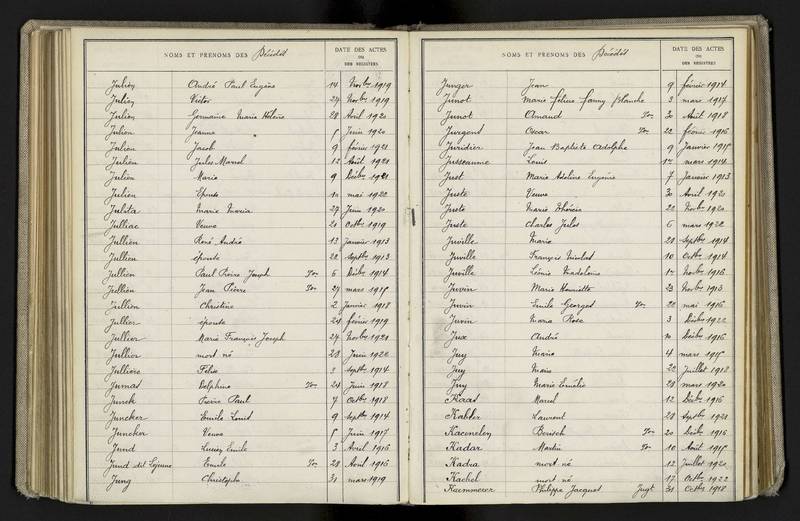 NOMS ET PRÉNOMS DES Décédés
DATE DES ACTES
OU
DES REGISTRES
Julien André Paul Eugène 14 Novbre 1919
Julien Victor 27 Novbre 1919
Julien Germaine Marie Hélène 28 Avril 1920
Julien Jeanne 5 Juin 1920
Julien Jacob 9 février 1921
Julien Jules Marcel 12 Août 1921
Julien Marie 9 Décbre 1921
Julien Epouse mai 1922
Julita Marie Maria 27 Juin 1920
Julliac Veuve 20 Octbre 1919
Jullien René André 13 Janvier 1913
Jullien épouse 22 Septbre 1913
Jullien Paul Pierre Joseph 6 Décbre 1914
Jullien Jean Pierre 27 mars 1915
Jullien Christine 2 Janvier 1918
Jullier épouse 24 février 1919
Jullier Marie François Joseph 24 Novbre 1920
Jullier mort né 28 Juin 1920
Julliere Félix Septbre 1914
Jumas Delphine 24 Juin 1918
Junck Pierre Paul 7 Octbre 1918
Juncker Emile Louis 9 Septbre 1914
Juncker Veuve 5 Juin 1917
Jund Emile 3 Avril 1916
Jund dit Lejeune Emile 28 Avril 1916
Jung Christophe 31 mars 1919
NOMS ET PRÉNOMS DES Décédés
DATE DES ACTES
OU
DES REGISTRES
Junger Jean 9 février 1914
Junot Marie fanny Blanche 3 mars 1917
Junot Amand 2 Août 1918
Jurgend Oscar 22 février 1916
Juridier Jean Baptiste Adolphe 9 Janvier 1915
Jusseaume Louis mars 1914
Just Marie Adeline Eugénie 7 Janvier 1913
Juste Veuve 30 Avril 1920
Juste Marie Thérèse 22 Novbre 1920
Juste Charles Jules 6 mars 1922
Juville Marie 28 Septbre 1914
Juville François Nicolas 10 Octbre 1914
Juville Léonie Madeleine Novbre 1916
Juvin Marie Henriette 23 Novbre 1913
Juvin Emile Georges 22 mai 1916
Juvin Maria Rose 3 Décbre 1922
Jux André Décbre 1916
Juy Marie 4 mars 1915
Juy Marie 22 Juillet 1918
Juy Marie Emélie 28 mars 1920
Kaas Marcel 12 Décbre 1916
Kabler Laurent 28 Septbre 1928
Kacenelen Berisch 20 Décbre 1916
Kadar Martin 10 Août 1915
Kadia mort né 12 Juillet 1920
Kaehel mort né 17 Octbre 1922
Kaemmerer Philippe Jacques 31 Octbre 1918